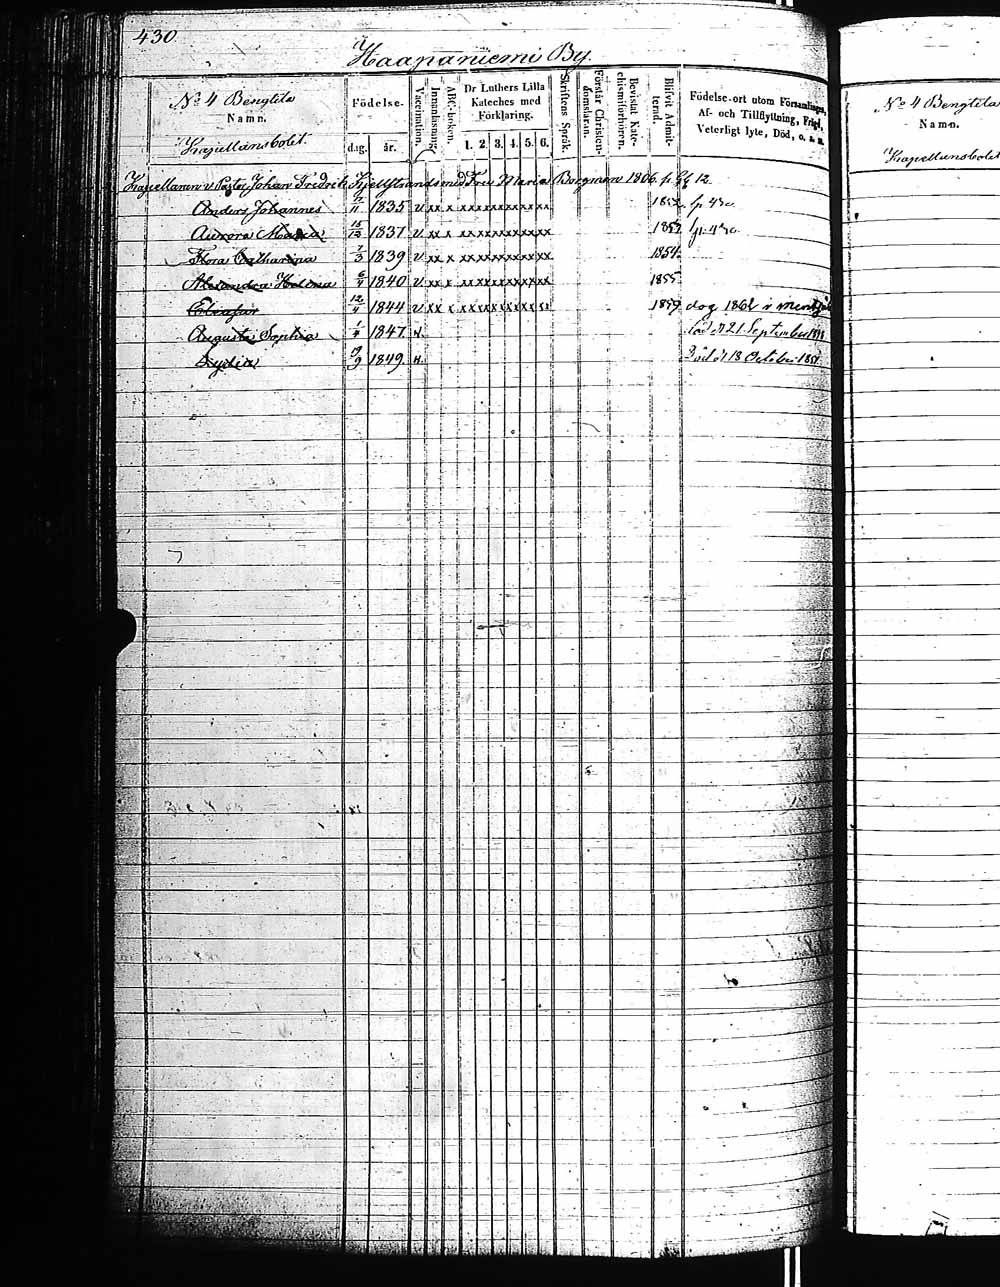 430
Haapaniemi By.
No 4 Bengtila
Namn.
Kapellansbolet.
Födelse-
dag. år.
Vaccination.
Innanläsning.
ABC-boken.
Dr Luthers Lilla Kateches med Förklaring.
1. 2. 3. 4. 5. 6.
Skriftens Språk.
Förstår Christendomsläran.
Bevistat Katechismiförhören.
Blifvit Admitterad.
Födelse-ort utom Församlingen,
Af- och Tillflyttning, Frejd,
Veterligt lyte, Död, o. s. v.
Kapellanen v Pastor Johan Fredrik Kjellstrand med Fru Maria Borgman 1806. p.
Anders Johannes 11 1835 v xx x xxxxxxxxxxx 1852 p 430
Aurora Maria 1837 v xx x xxxxxxxxxxx 1857 p. 430
Flora Catharina 7/3 1839 v xx x xxxxxxxxxxx 1854
Alexandra Helena 6/4 1840 v xx x xxxxxxxxxxx 1855
12/4 1844 v xx x xxxxxxxxxxx 1859
Augusta Sophia 1847 död d 21 September
Lydia 9 1849 död d 18 October
No 4 Bengtila
Namn.
Kapellansbolet